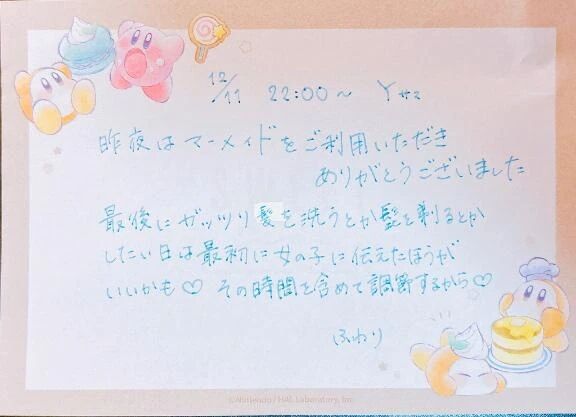 12/11 22:00〜 Yサマ
昨夜はマーメイドをご利用いただき
ありがとうございました
最後にガッツリ髪を洗うとか髭を剃るとか
したい日は最初に女の子に伝えたほうが
いいかも♡ その時間を含めて調節するから♡
ふわり
©Nintendo / HAL Laboratory, Inc.